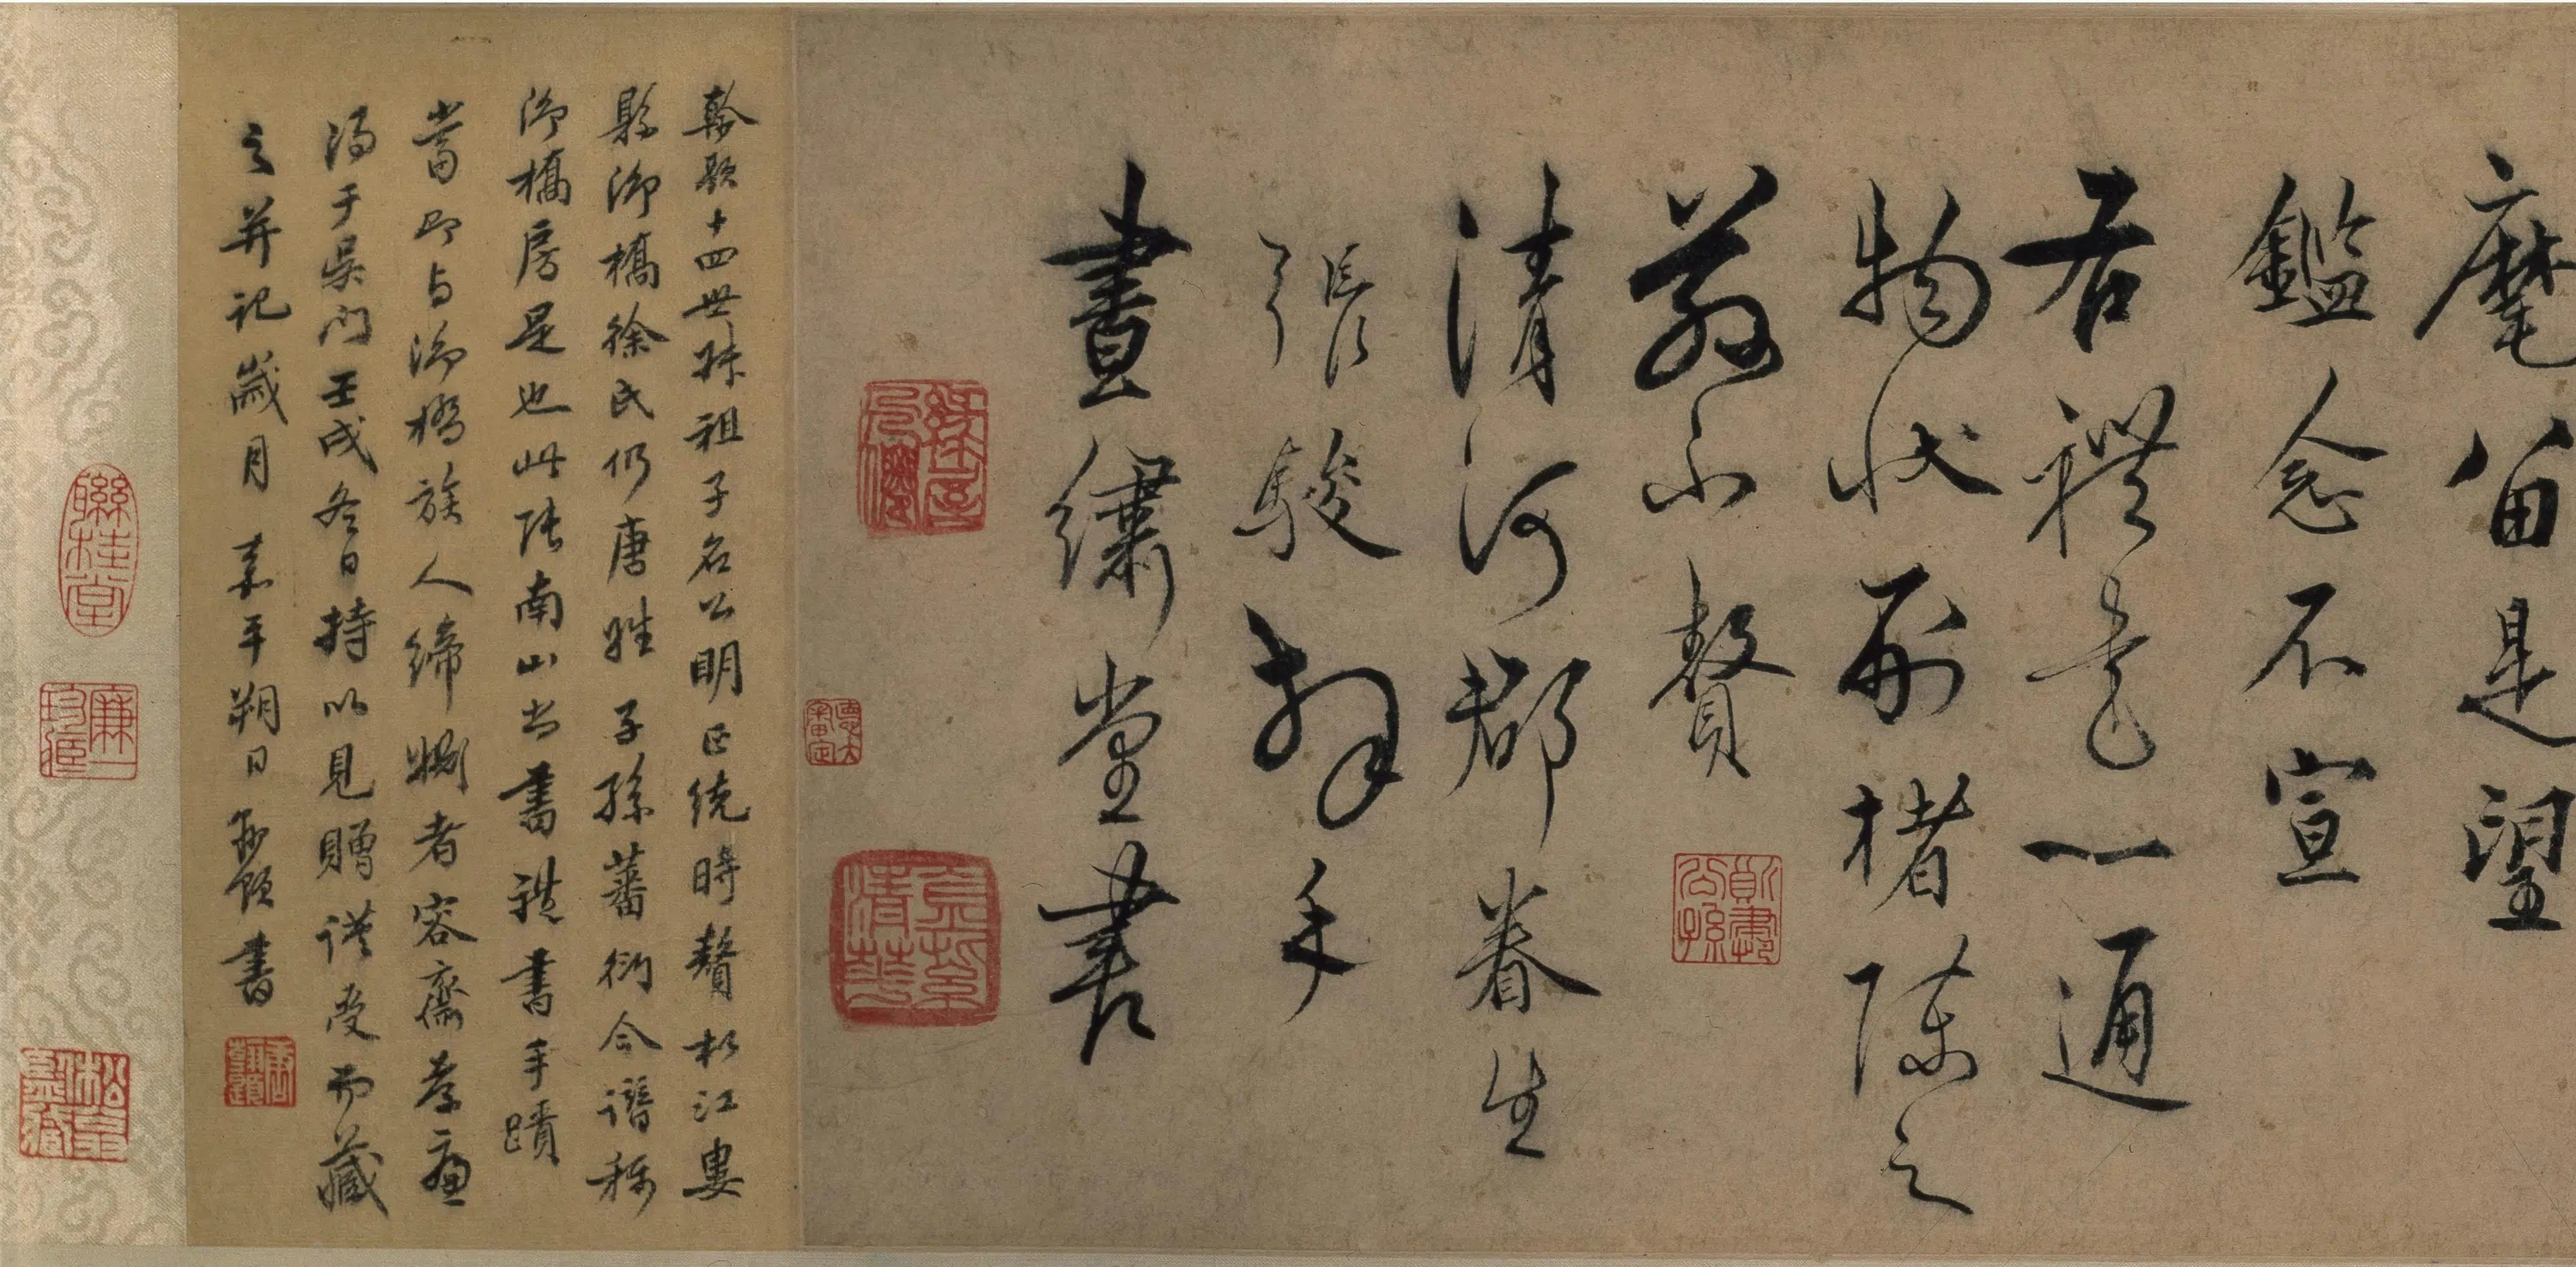 麾留是望
鑑念不宣
右禮書一通
物狀別楮陳之
敬不贅
清河郡眷生
張駿拜手
晝繡堂書
翰題十四世叔祖子名公明正統時贅松江婁
縣御橋徐氏仍唐姓子孫蕃衍今譜稱
御橋房是也此張南山書禮書手蹟
當即與御橋族人締婣者容齋孝廉
得于吳門壬戌冬日持以見贈謹受而藏
之并記歲月 嘉平朔日翰題書
聯桂堂